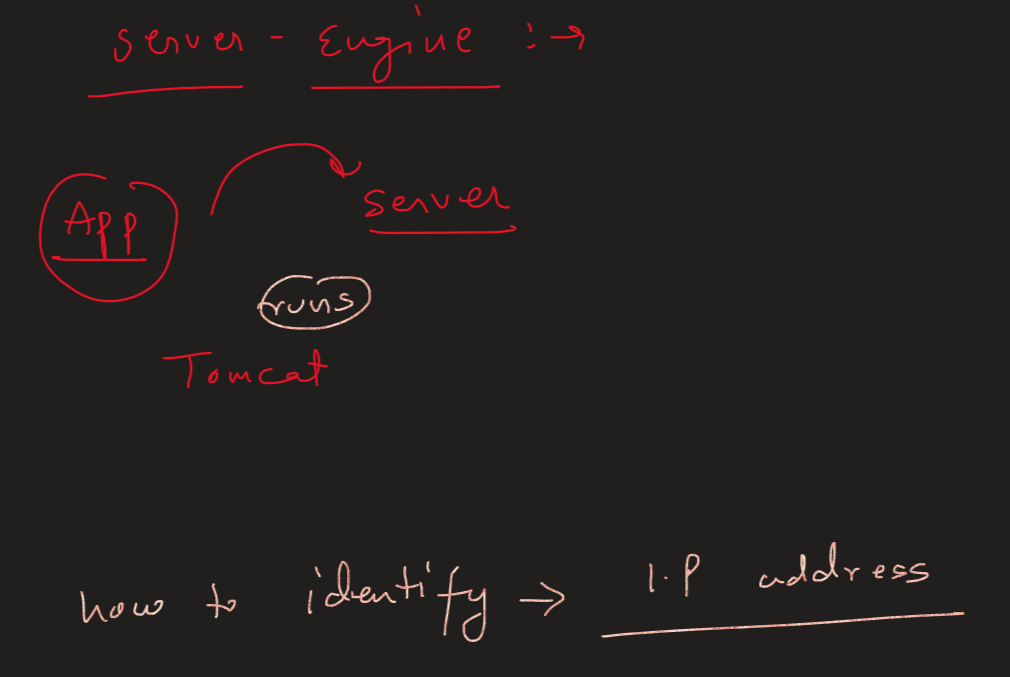 Server - Engine :→
App
Server
runs
Tomcat
how to identify → I.P address